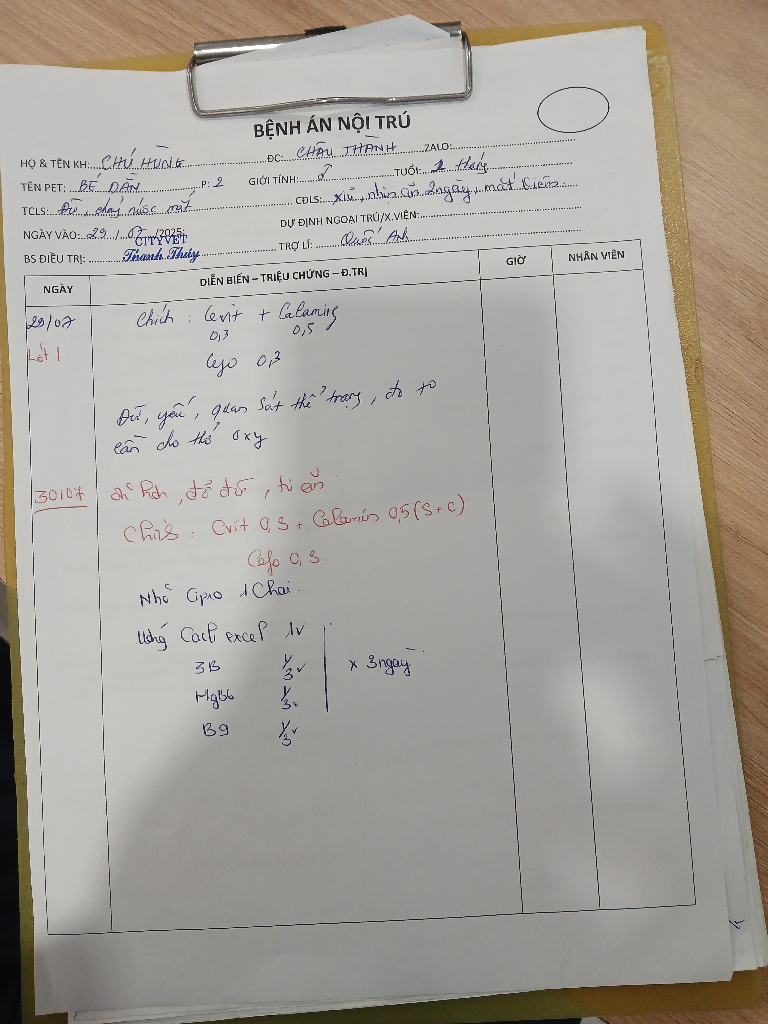 BỆNH ÁN NỘI TRÚ
HỌ & TÊN KH: CHÚ HÙNG ĐC: CHÂU THÀNH ZALO:
TÊN PET: BÉ DẦN P: 2 GIỚI TÍNH: ♂ TUỔI: 2 tháng
TCLS: Đừ, chảy nước mắt CĐLS: xỉu, nhịn ăn 2 ngày, mắt kiếm
NGÀY VÀO: 29 / 07 /2025: DỰ ĐỊNH NGOẠI TRÚ/X.VIỆN:
CITYVET
BS ĐIỀU TRỊ: Thanh Thúy TRỢ LÍ: Quốc Anh
NGÀY DIỄN BIẾN – TRIỆU CHỨNG – Đ.TRỊ GIỜ NHÂN VIÊN
29/07 Chích : Cevit + Calamin
0,3 0,5
Lát 1 Cefo 0,3
Đừ, yếu, quan sát thể trạng, đo to
cần cho thở oxy
30/07 ổn hơn, đỡ đừ, tự ăn
Chích : Cvit 0,3 + Calamin 0,5 (S + C)
Cefo 0,3
Nhỏ Cipro 1 Chai
Uống Cacti excel 1v
3B 1/3v x 3 ngày
MgB6 1/3v
B9 1/3v